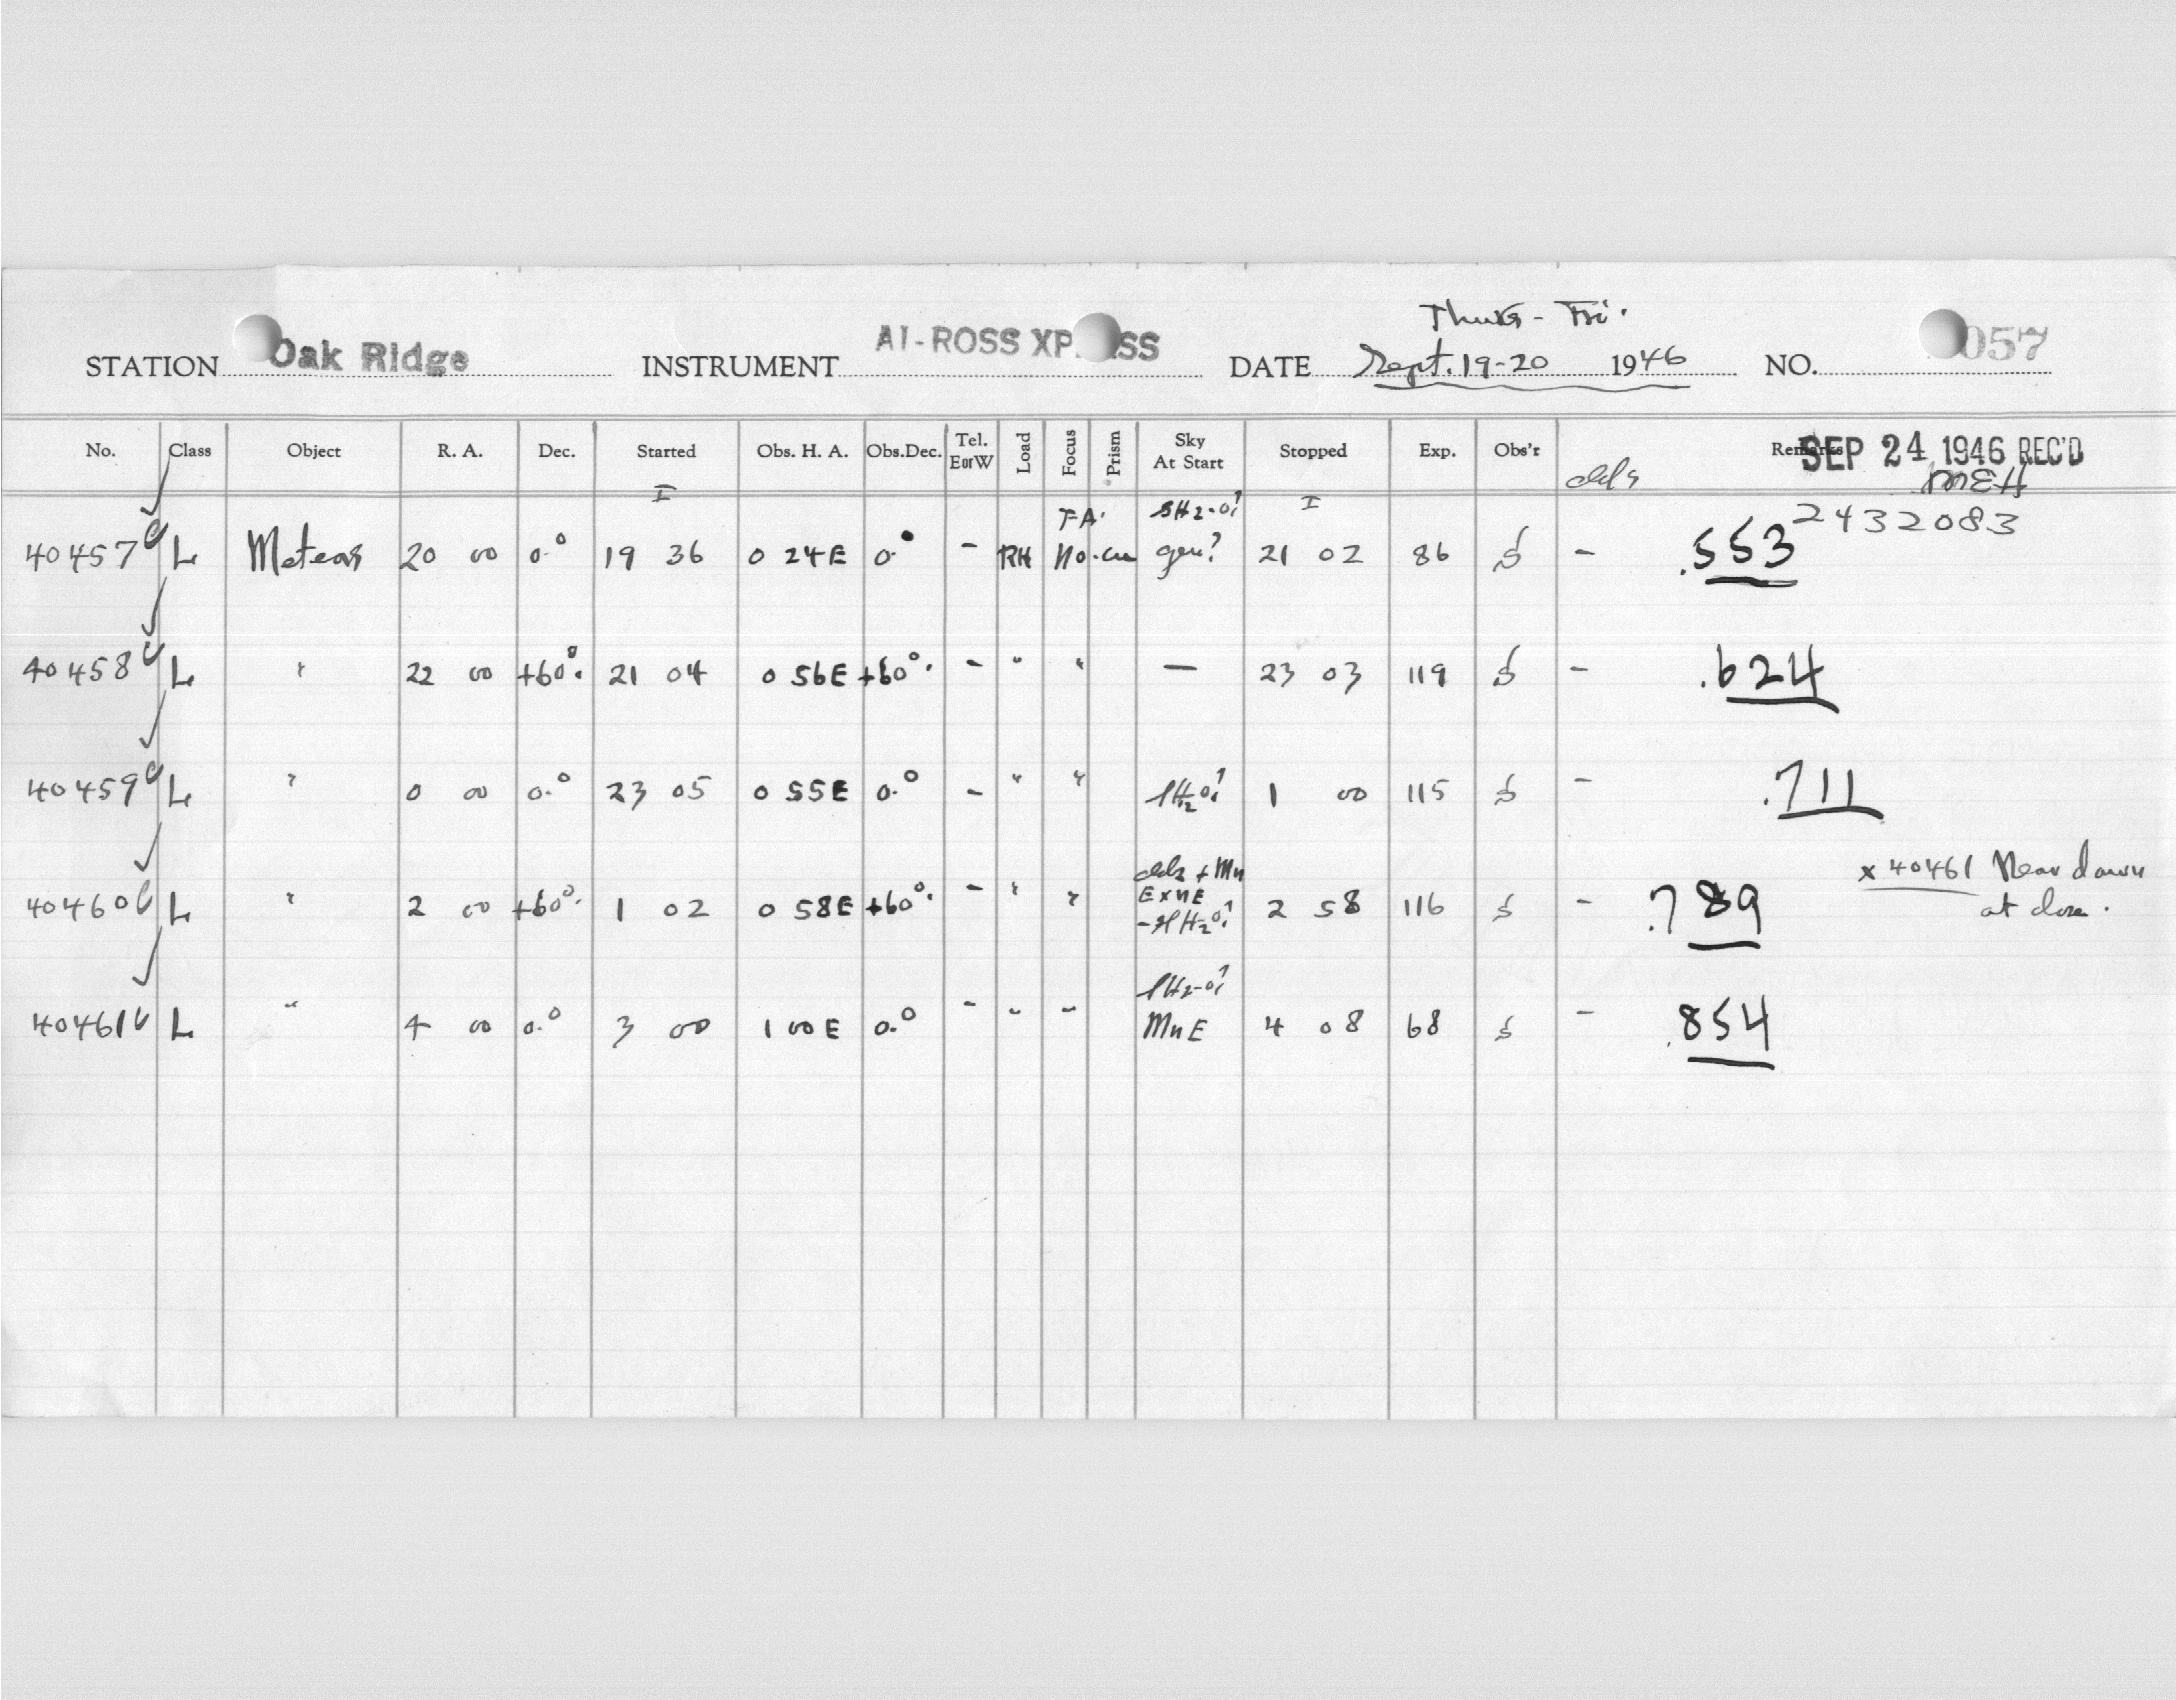 Thurs - Fri.
STATION Oak Ridge INSTRUMENT AI-ROSS XP SS DATE Sept. 19-20 1946 NO. 057
No. Class Object R. A. Dec. Started Obs. H. A. Obs.Dec. Tel. EorW Load Focus Prism Sky At Start Stopped Exp. Obs'r Remarks
SEP 24 1946 REC'D
I I MEH
2432083
40457 L Meteors 20 00 0.° 19 36 0 24E 0.° - RH F.A. No. SH2-0? gen? 21 02 86 S - .553
40458 L " 22 00 +60°. 21 04 0 56E +60°. - " " — 23 03 119 S - .624
40459 L " 0 00 0.° 23 05 0 55E 0.° - " " 1 00 115 S - .711
40460 L " 2 00 +60°. 1 02 0 58E +60°. - " " clds + Mn E x NE 2 58 116 S - .789
x 40461 Near dawn
at close.
40461 L " 4 00 0.° 3 00 1 00 E 0.° - " " Mn E 4 08 68 S - .854